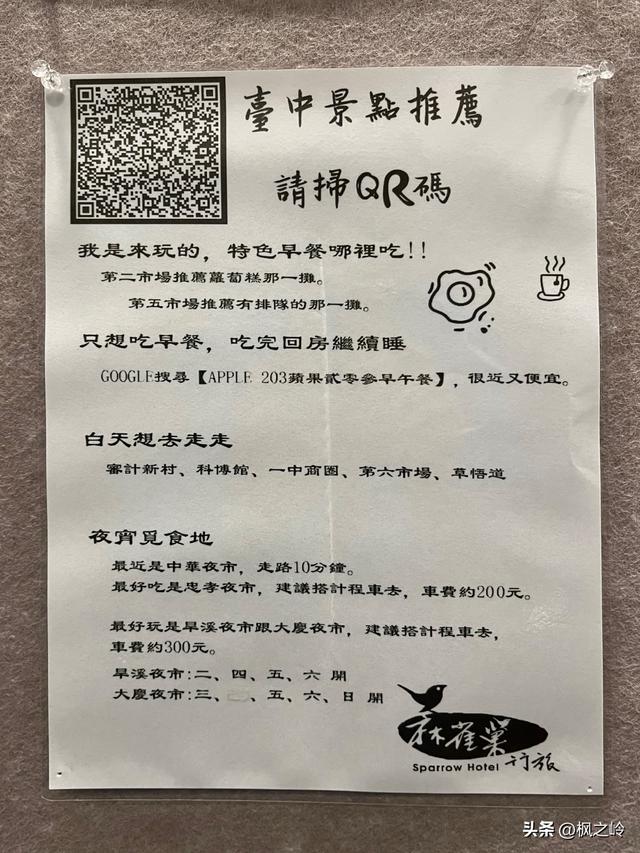 臺中景點推薦
請掃QR碼
我是來玩的，特色早餐哪裡吃!!
第二市場推薦蘿蔔糕那一攤。
第五市場推薦有排隊的那一攤。
只想吃早餐，吃完回房繼續睡
GOOGLE搜尋【APPLE 203蘋果貳零參早午餐】，很近又便宜。
白天想去走走
審計新村、科博館、一中商圈、第六市場、草悟道
夜宵覓食地
最近是中華夜市，走路10分鐘。
最好吃是忠孝夜市，建議搭計程車去，車費約200元。
最好玩是旱溪夜市跟大慶夜市，建議搭計程車去，
車費約300元。
旱溪夜市:二、四、五、六 開
大慶夜市:三、、五、六、日 開
麻雀巢
Sparrow Hotel 行旅
头条 @枫之岭